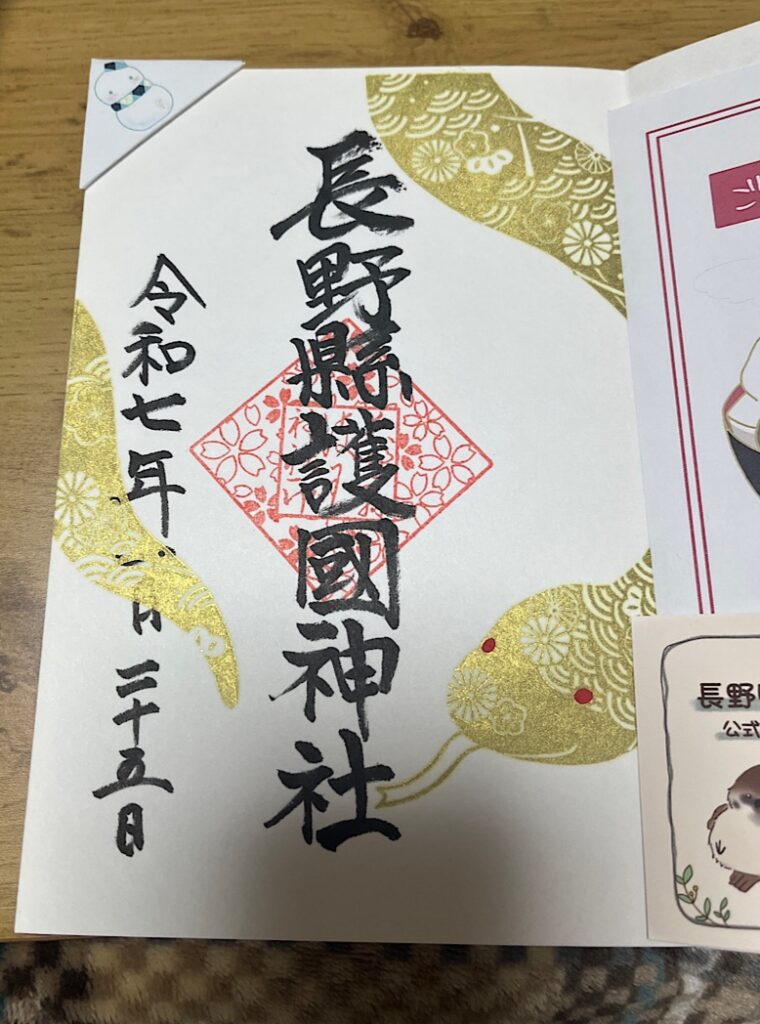 長野縣護國神社
令和七年一月二十五日
長野
公式